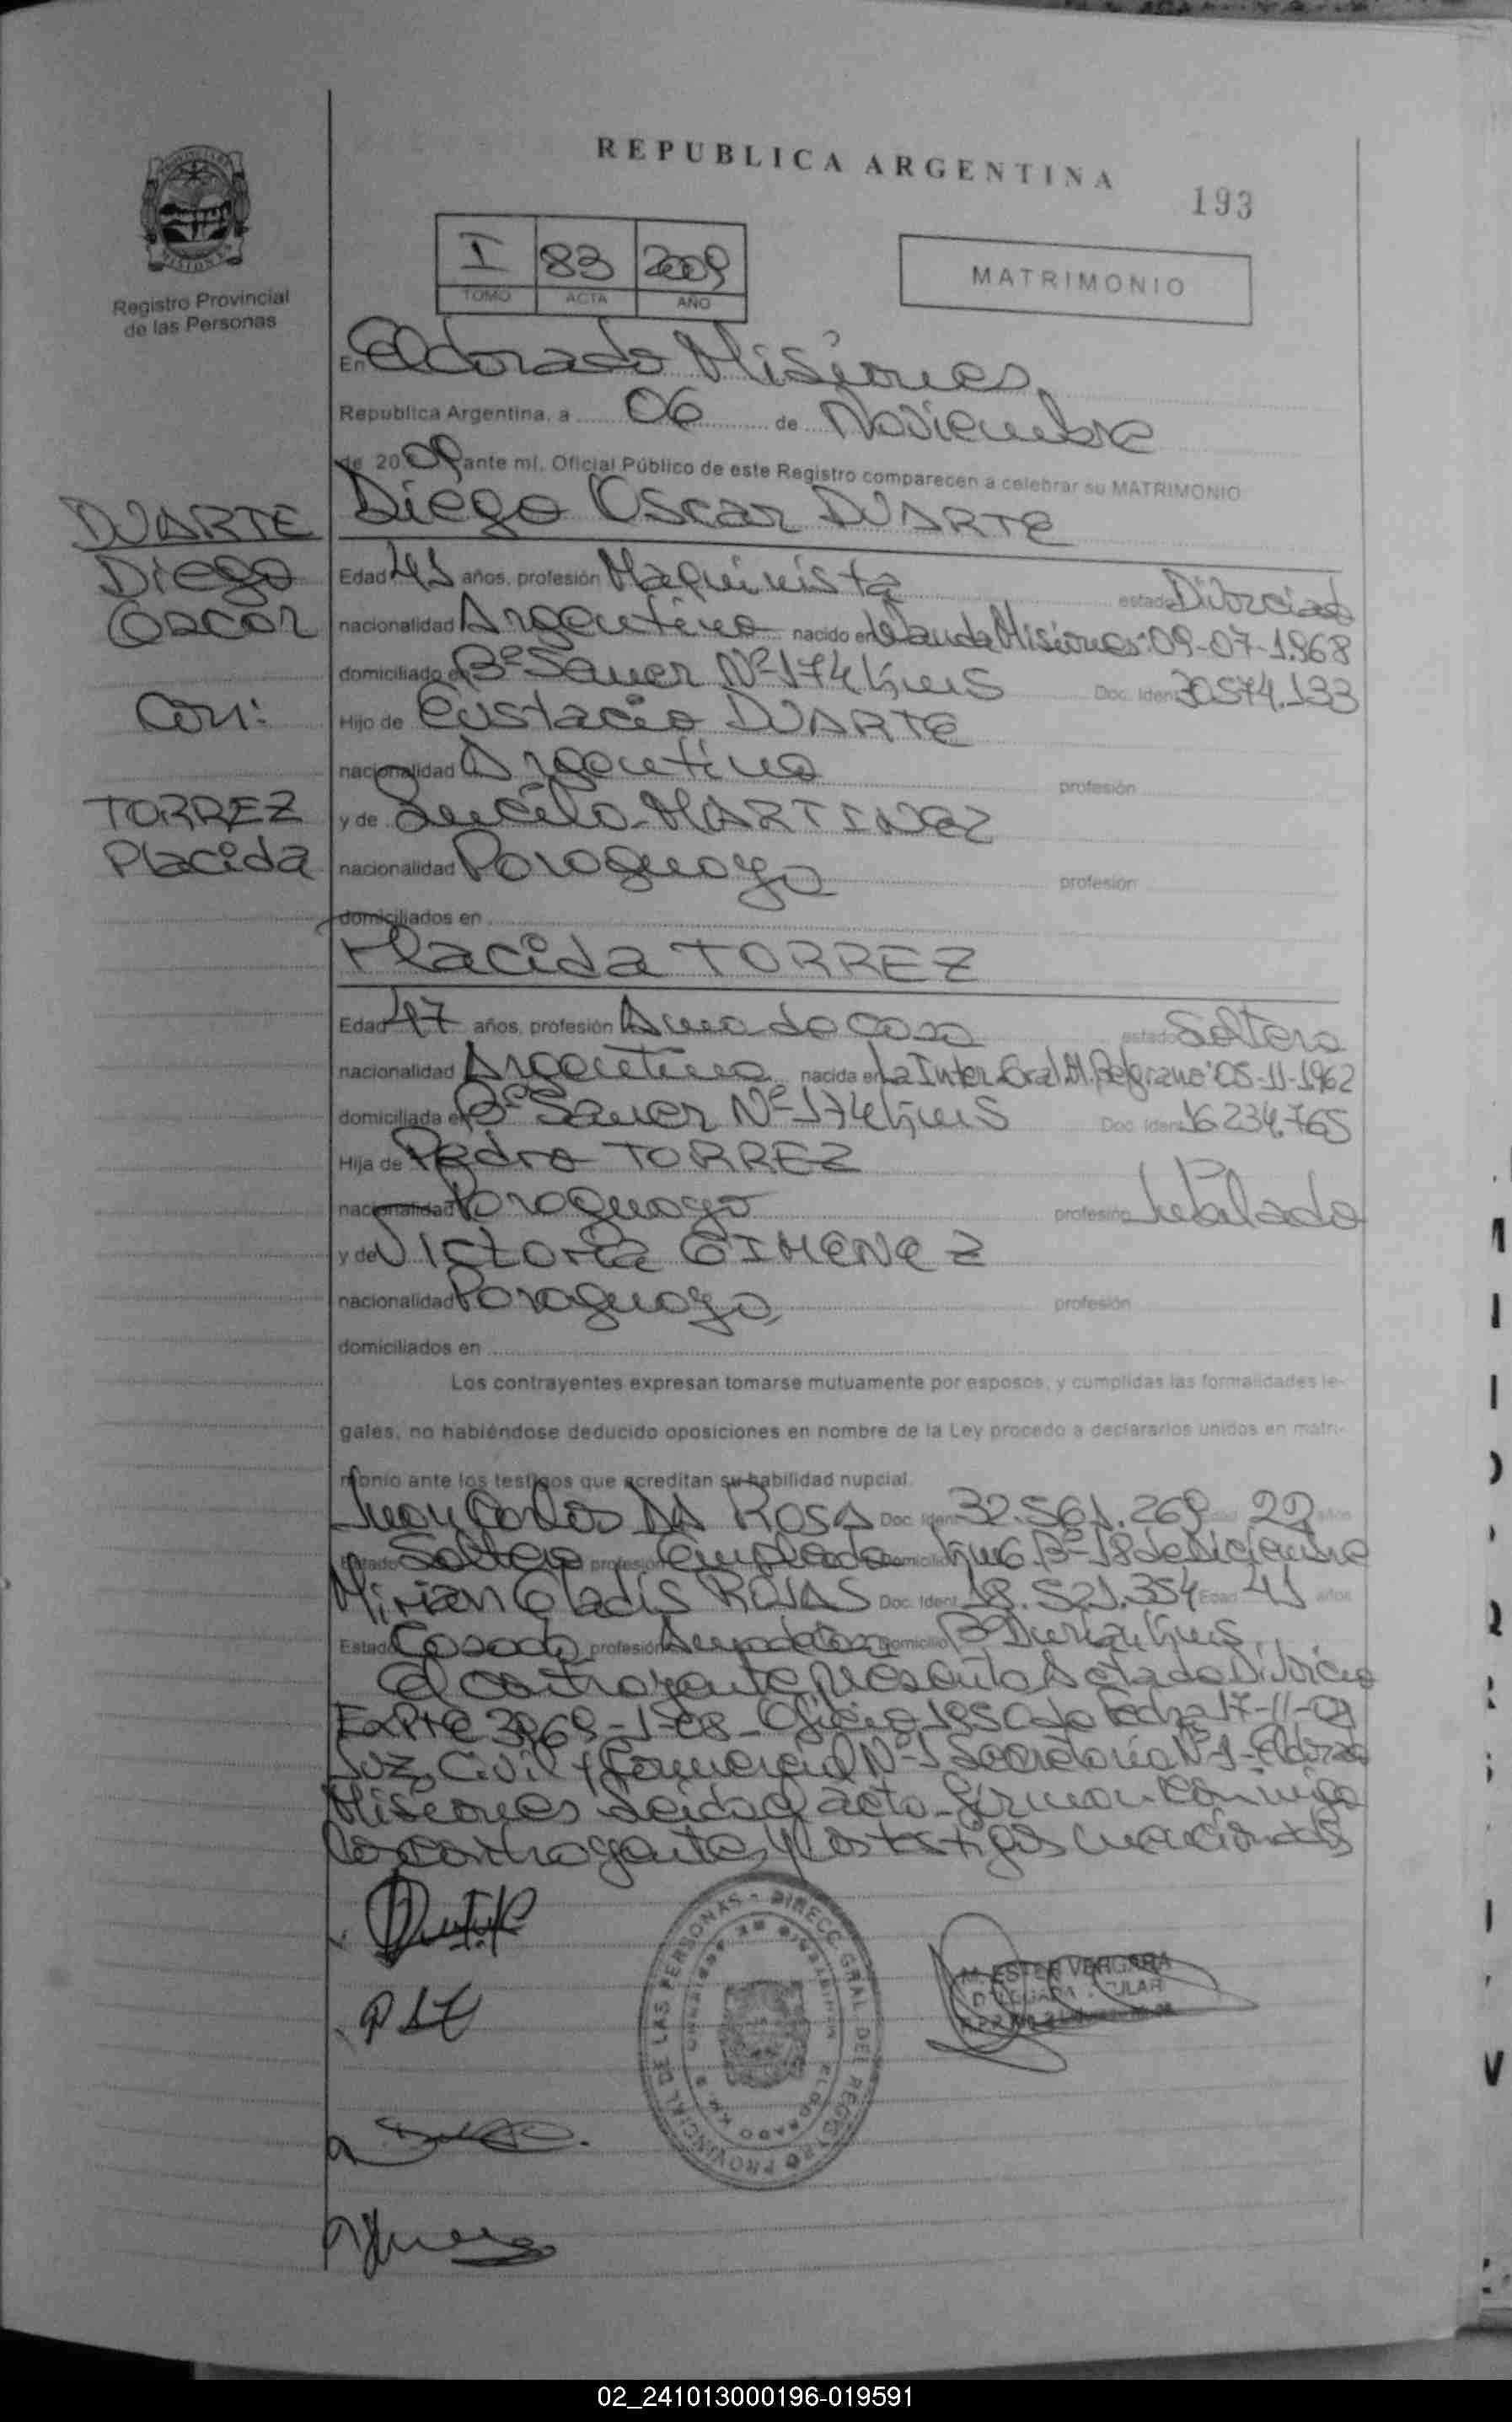 REPUBLICA ARGENTINA
193
PROVINCIA DE MISIONES
Registro Provincial
de las Personas
I 83 2009
TOMO ACTA AÑO
MATRIMONIO
En Eldorado Misiones,
Republica Argentina, a 06 de Noviembre
de 2009 ante mí, Oficial Público de este Registro comparecen a celebrar su MATRIMONIO
Diego Oscar DUARTE
DUARTE
Diego
Oscar
Con:
TORREZ
Placida
Edad 41 años, profesión Maquinista estado Divorciado
nacionalidad Argentino nacido en Wanda Misiones 09-07-1.968
domiciliado en Bº Sauer Nº 174 Doc. Iden 30.574.133
Hijo de Eustacio DUARTE
nacionalidad Argentino
profesión
y de Lucila MARTINEZ
nacionalidad Paraguaya
profesión
domiciliados en
Placida TORREZ
Edad 47 años, profesión Ama de casa estado Soltera
nacionalidad Argentina nacida en La Inter. Gral. M. Belgrano 05-11-1962
domiciliada en Bº Sauer Nº 174 Doc. Iden 16.234.765
Hija de Pedro TORREZ
nacionalidad Paraguayo profesión Jubilado
y de Victoria GIMENEZ
nacionalidad Paraguaya profesión
domiciliados en
Los contrayentes expresan tomarse mutuamente por esposos, y cumplidas las formalidades le-
gales, no habiéndose deducido oposiciones en nombre de la Ley procedo a declararlos unidos en matri-
monio ante los testigos que acreditan su habilidad nupcial.
Juan Carlos DA ROSA Doc. Iden 32.561.269 Edad 22 años
Estado Soltero profesión Empleado Domicilio Km 6 Bº 18 de Diciembre
Mirian Gladis ROJAS Doc. Ident 18.521.354 Edad 41 años
Estado Casada profesión Domicilio Bº
El contrayente presenta Acta de Divorcio
Expte 3969-1-08 Oficio 185 de fecha 17-11-09
Juz. Civil y Comercial Nº 1 Secretaría Nº 1 Eldorado
Misiones Leida el acta firman conmigo
los contrayentes y los testigos mencionados
DIRECC. GRAL. DEL REGISTRO PROVINCIAL DE LAS PERSONAS
ELDORADO KM.
M. ESTER VERGARA
02_241013000196-019591